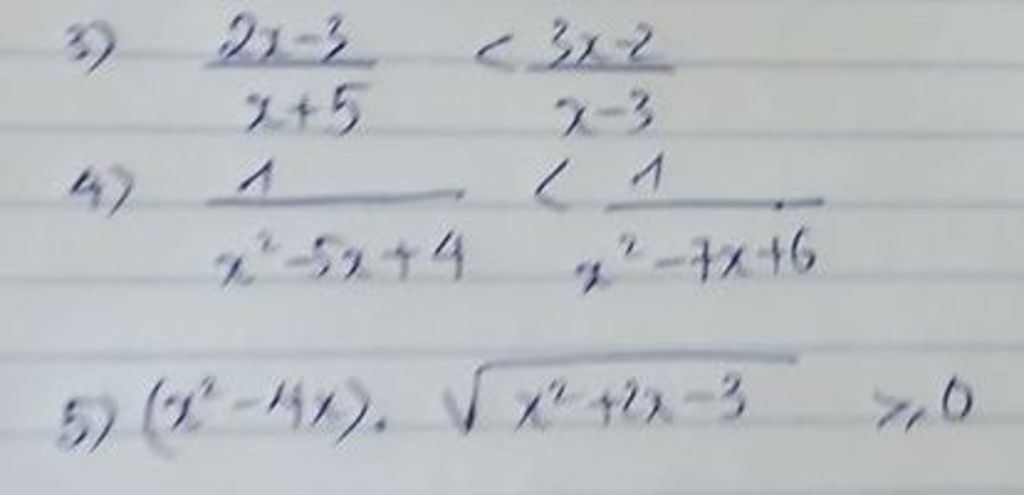 3) \frac{2x-3}{x+5} < \frac{3x-2}{x-3}
4) \frac{1}{x^2-5x+4} < \frac{1}{x^2-7x+6}
5) (x^2-4x). \sqrt{x^2+2x-3} \geqslant 0